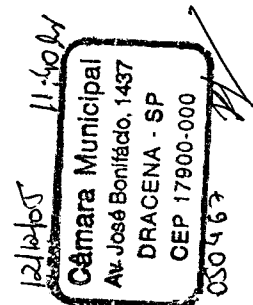 12/12/05 11:40hs
Câmara Municipal
Av. José Bonifácio, 1437
DRACENA - SP
CEP 17900-000
050467